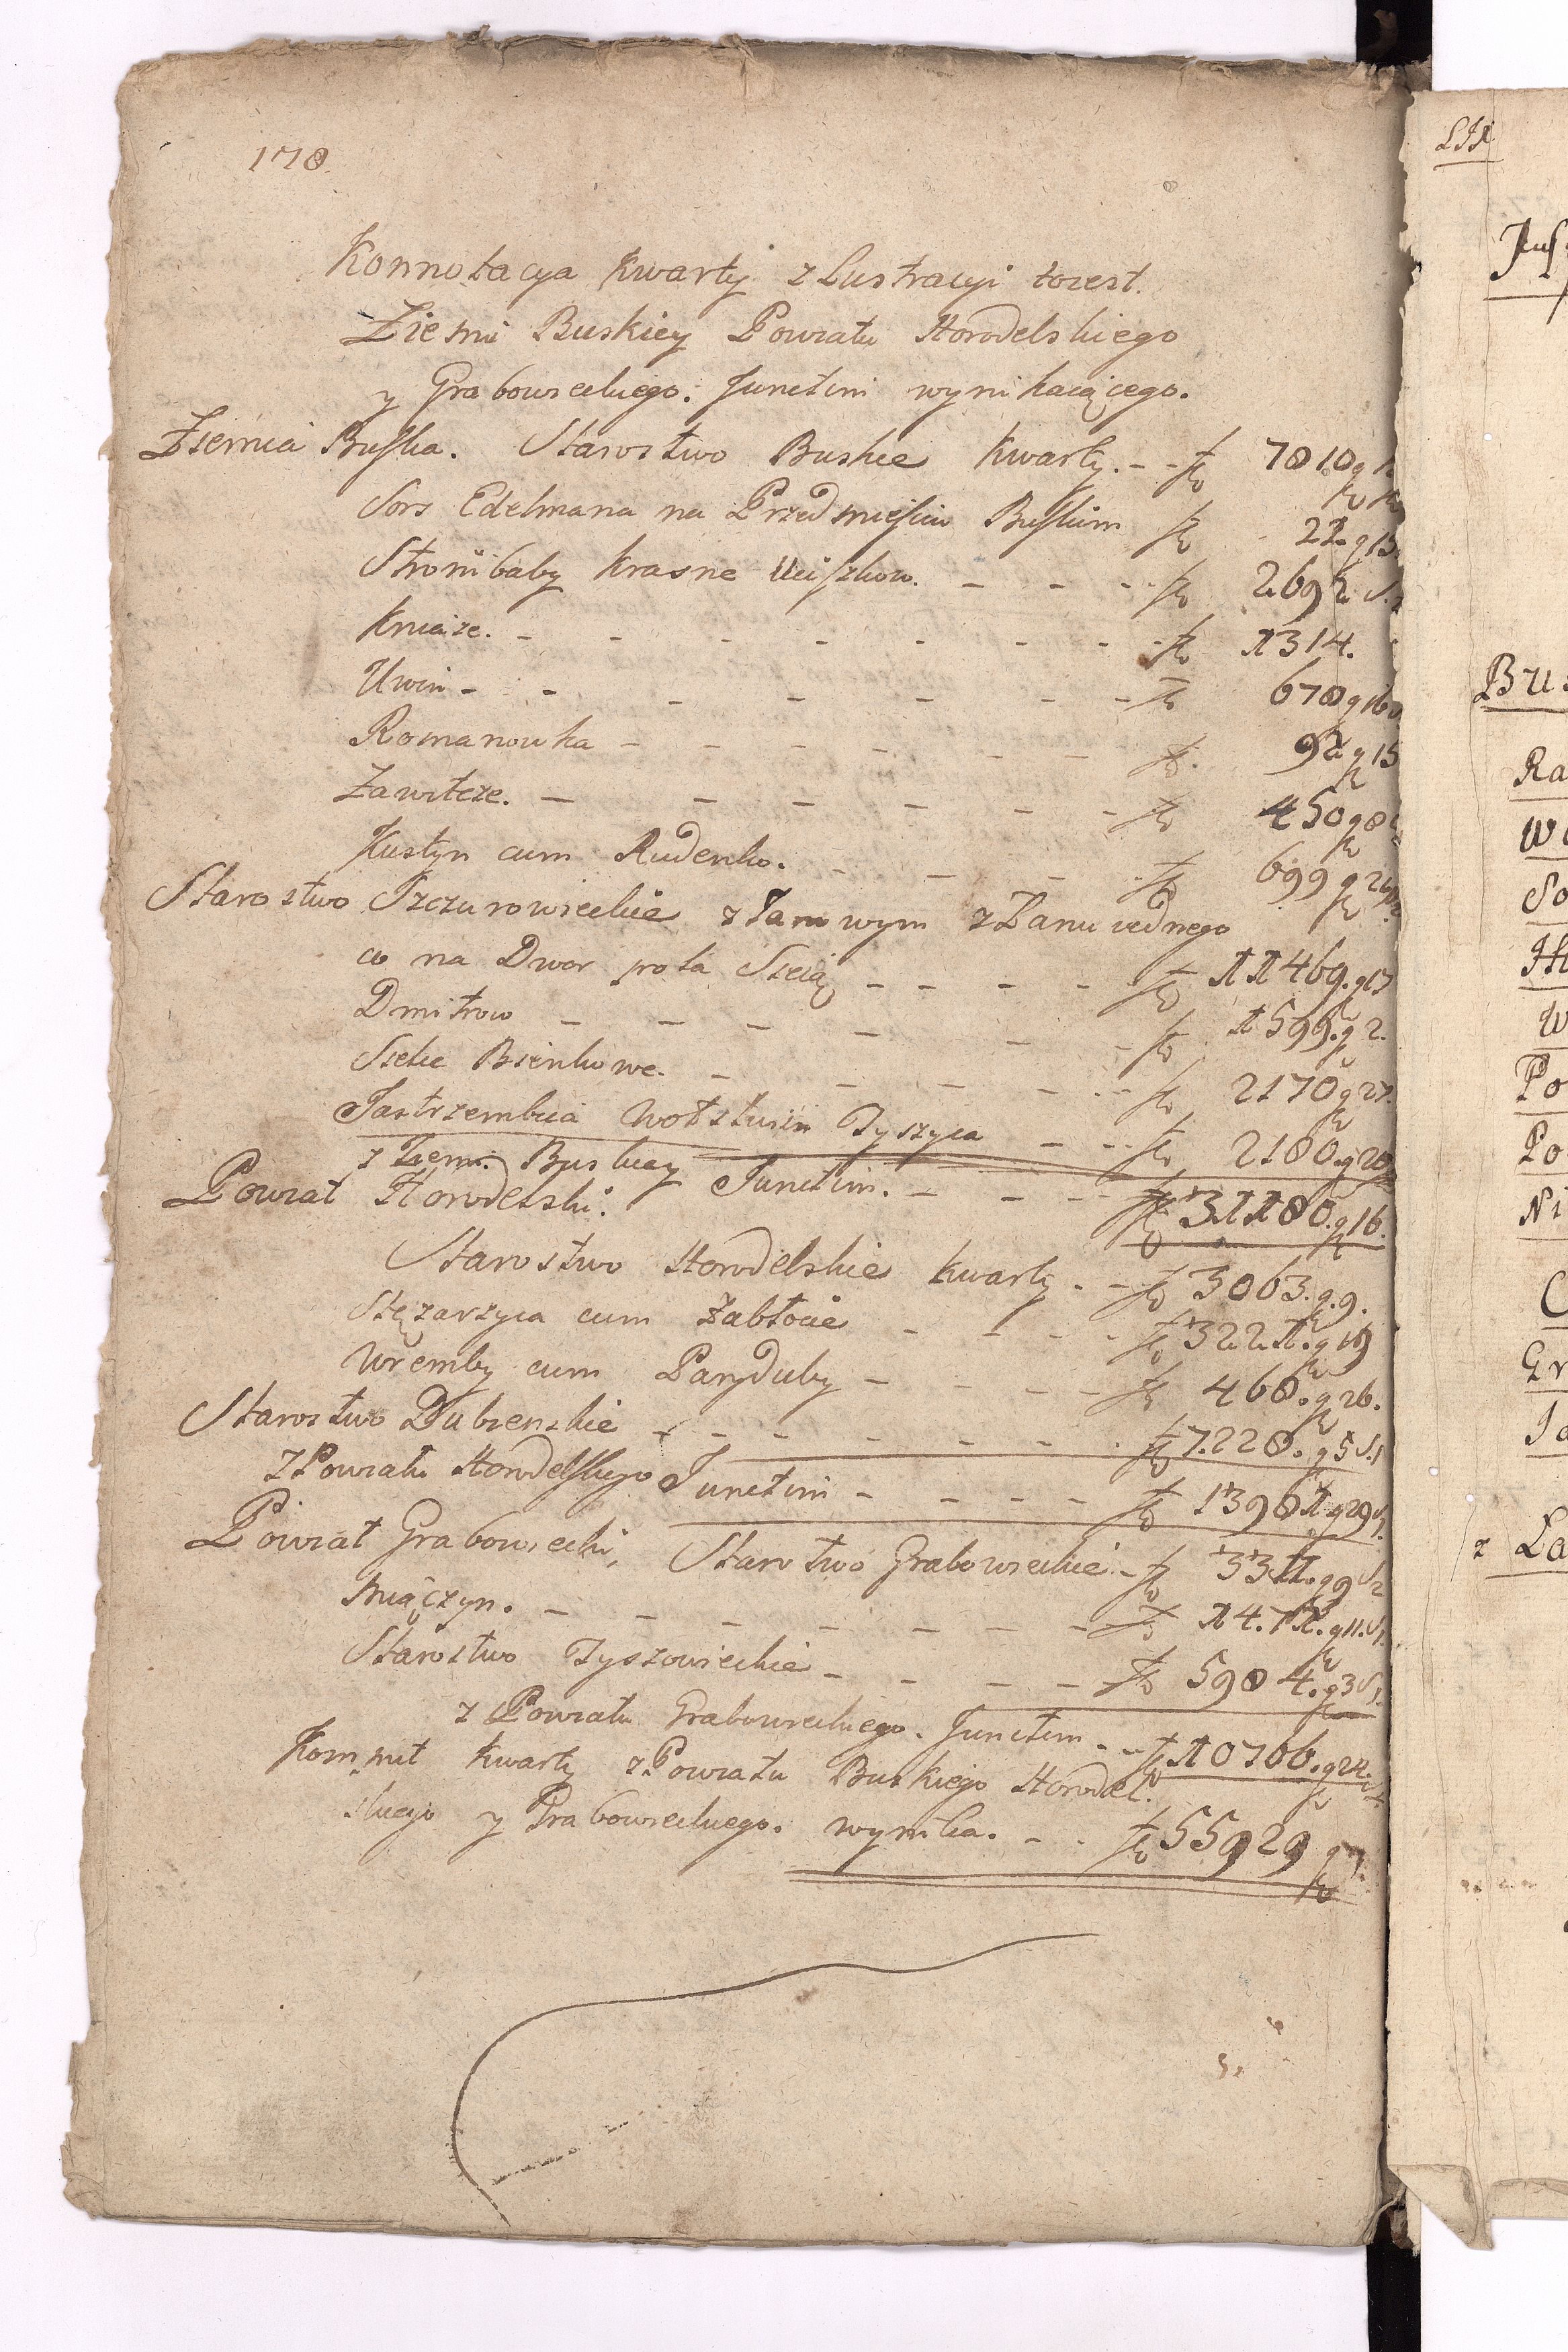 178.
Konnotacya kwarty z Lustracyi to iest
Ziemi Buskiey Powiatu Horodelskiego
y Grabowieckiego. Junctim wynikaiącego.
Ziemia Buska. Starostwo Buskie kwarty. - - fl 7810 g
Sors Edelmana na Przedmieściu Buskim fl - 22. g 15
Stronibaby Krasne Uciszkow. - - - fl 2692
Kniaże. - - - - - - - fl 1314.
Uwin - - - - - - fl 678 g 16
Romanowka - - - - - - fl. 92. g 15
Zawitcze. - - - - - - fl 450 g 8
Kustyn cum Rudenko. - - - fl 699 g
Starostwo Szczurowieckie z Łanowym z Łanu iednego
co na Dwor pola Sieią - - - - fl 11469. g 17
Dmitrow - - - - - - fl 1599. g 2.
Sielce Bienkowe. - - - - - fl 2170 g 27.
Jastrzembica Wołswin Tyszyca - - - fl 2180. g 20
z Ziemi Buskiey Junctim. - - - fl 31180. g 16.
Powiat Horodelski.
Starostwo Horodelskie kwarty. - fl 3063. g. 9.
Stężarzyca cum Zabłocie - - - - fl 3221. g 19
Wremby cum Paryduby - - - - fl 468. g 26.
Starostwo Dubienskie - - - - - - fl 7.228. g 5 S. 1
z Powiatu Horodelskiego Junctim - - - - fl 13981 g 29 S 1.
Powiat Grabowiecki, Starostwo Grabowieckie - fl 3311. g 9 S 2
Miączyn. - - - - - - - fl 14.71. g 11. S 1.
Starostwo Tyszowieckie - - - - fl 5984. g 3 S 1.
z Powiatu Grabowieckiego. Junctim. - - fl 10766. g 24.
Komput kwarty z Powiatu Buskiego Horodel.
skiego y Grabowieckiego. wynika. - - fl 55929 g